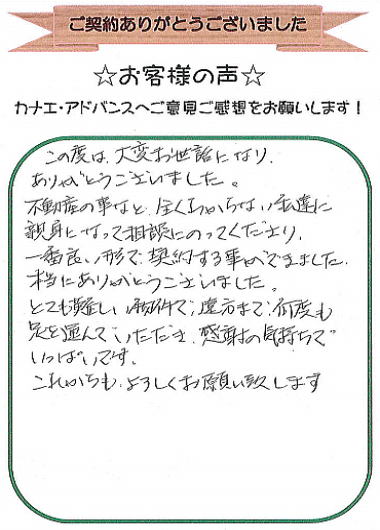 ご契約ありがとうございました
☆お客様の声☆
カナエ・アドバンスへご意見ご感想をお願いします！
この度は、大変お世話になり、
ありがとうございました。
不動産の事など、全くわからない私達に
親身になって相談にのってくださり、
一番良い形で契約する事ができました。
本当にありがとうございました。
とても難しい条件で、遠方まで、何度も
足を運んでいただき、感謝の気持ちで
いっぱいです。
これからも、よろしくお願い致します